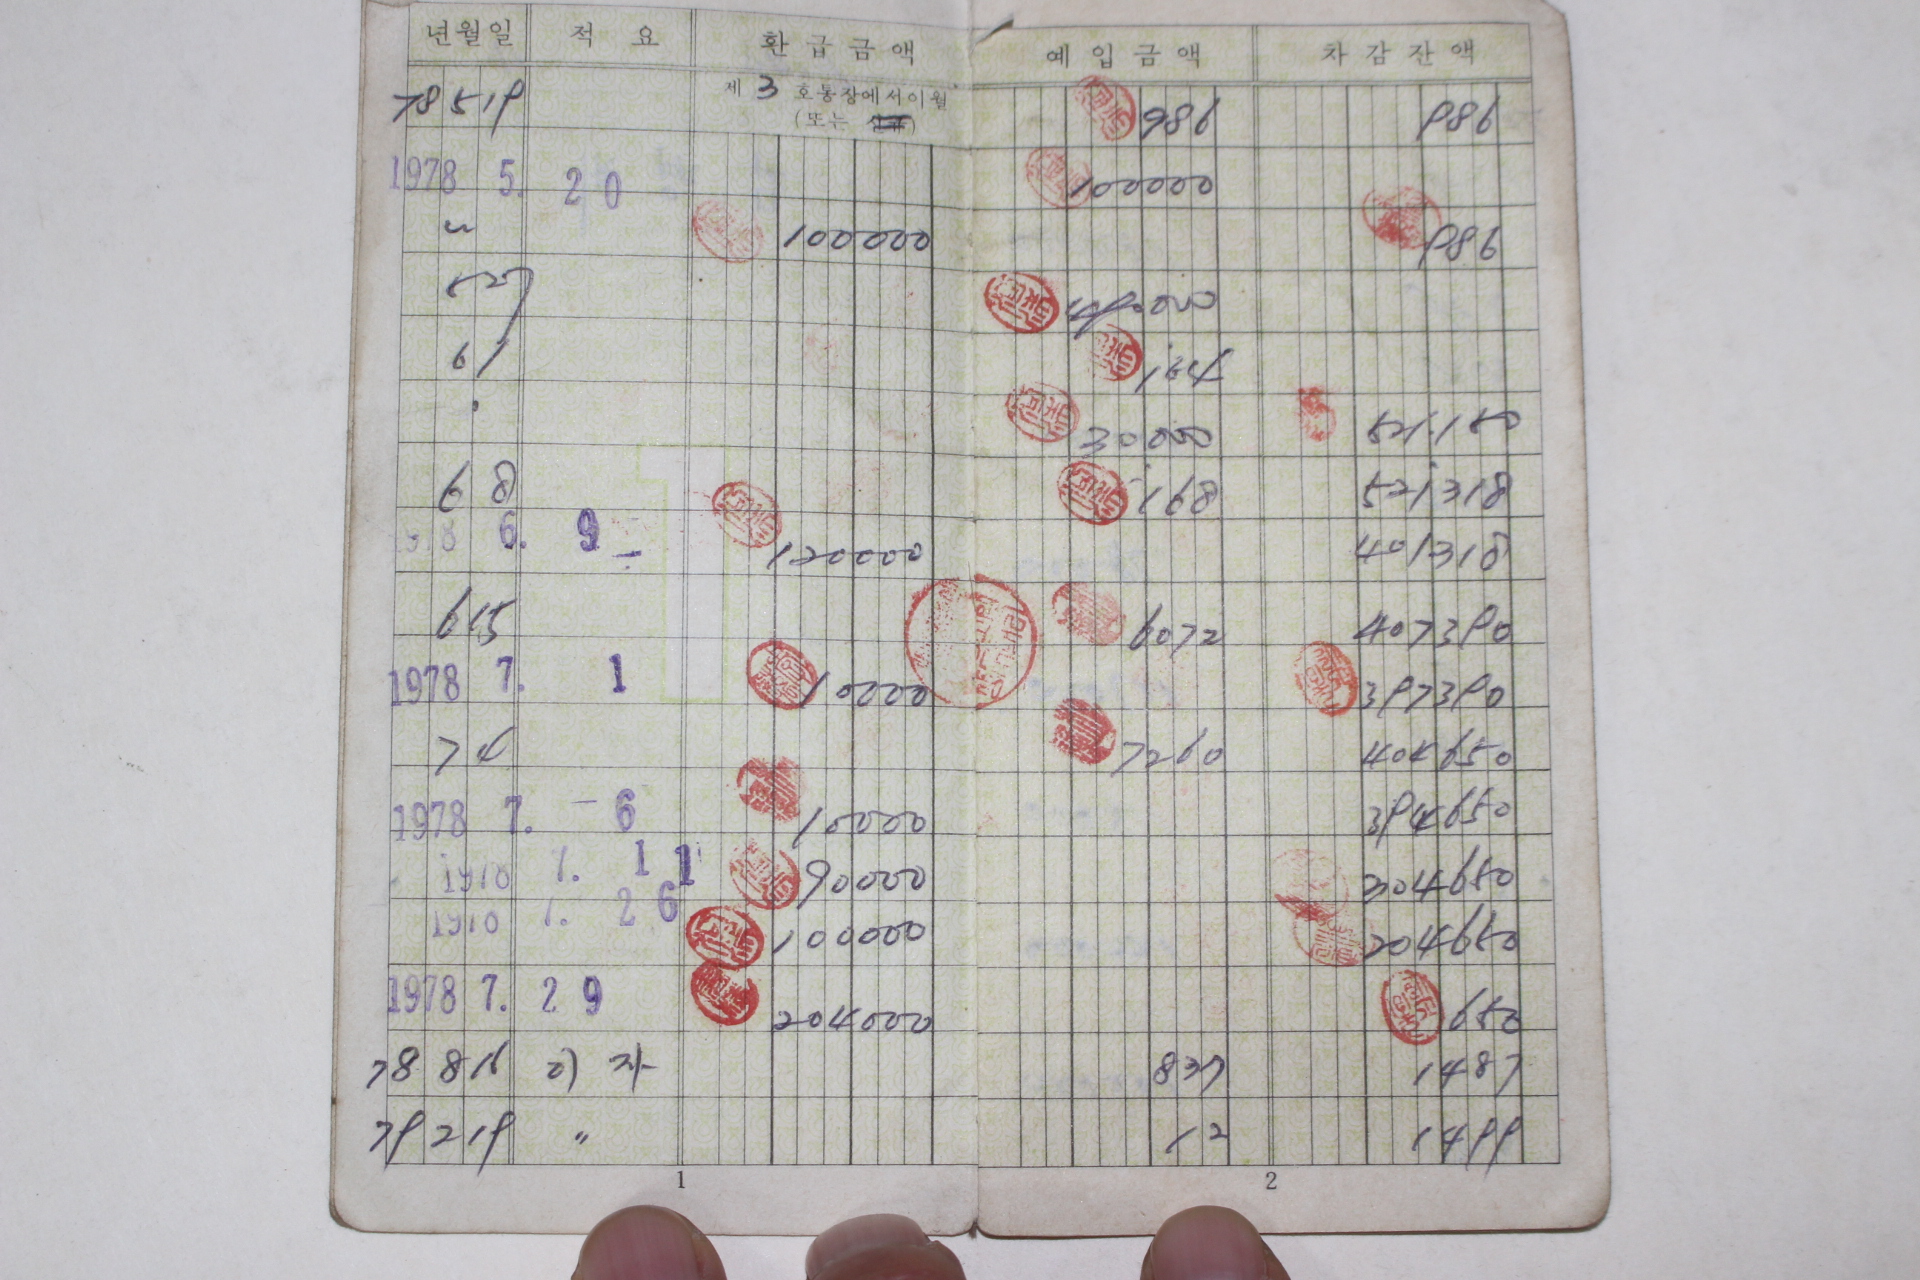 년월일 적 요 환급금액 예입금액 차감잔액
제 3 호통장에서이월
(또는
78 5 19 986 986
1978 5. 20 100000
〃 100000 986
5 27
6 1
30000 521150
6 8 168 521318
1978 6. 9 120000 401318
6 15 6072 407390
1978 7. 1 10000 397390
7 4 7260 404650
1978 7. 6 10000 394650
7. 11 90000 304650
7. 26 100000 204650
1978 7. 29 204000 650
78 8 16 이자 837 1487
79 2 19 〃 12 1499
1 2